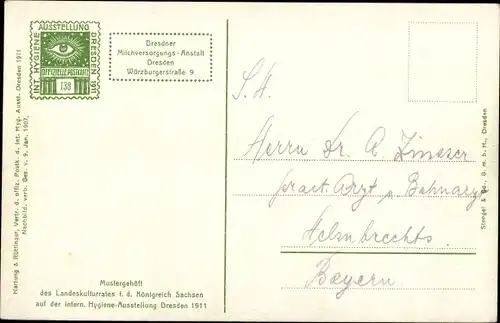 INT. HYGIENE
AUSSTELLUNG
DRESDEN 1911
OFFIZIELLE POSTKARTE
138
Dresdner
Milchversorgungs-Anstalt
Dresden
Würzburgerstraße 9
Hartung & Röttinger, Vertr. d. offiz. Postk. d. Int. Hyg. Ausst. Dresden 1911
Nachbild. verb. Ges. v. 9. Jan. 1907.
S. H.
Herrn Dr. A. Zinsser
pract. Arzt
Helmbrechts
Bayern
Mustergehöft
des Landeskulturrates f. d. Königreich Sachsen
auf der Intern. Hygiene-Ausstellung Dresden 1911
Stengel & Co., G. m. b. H., Dresden